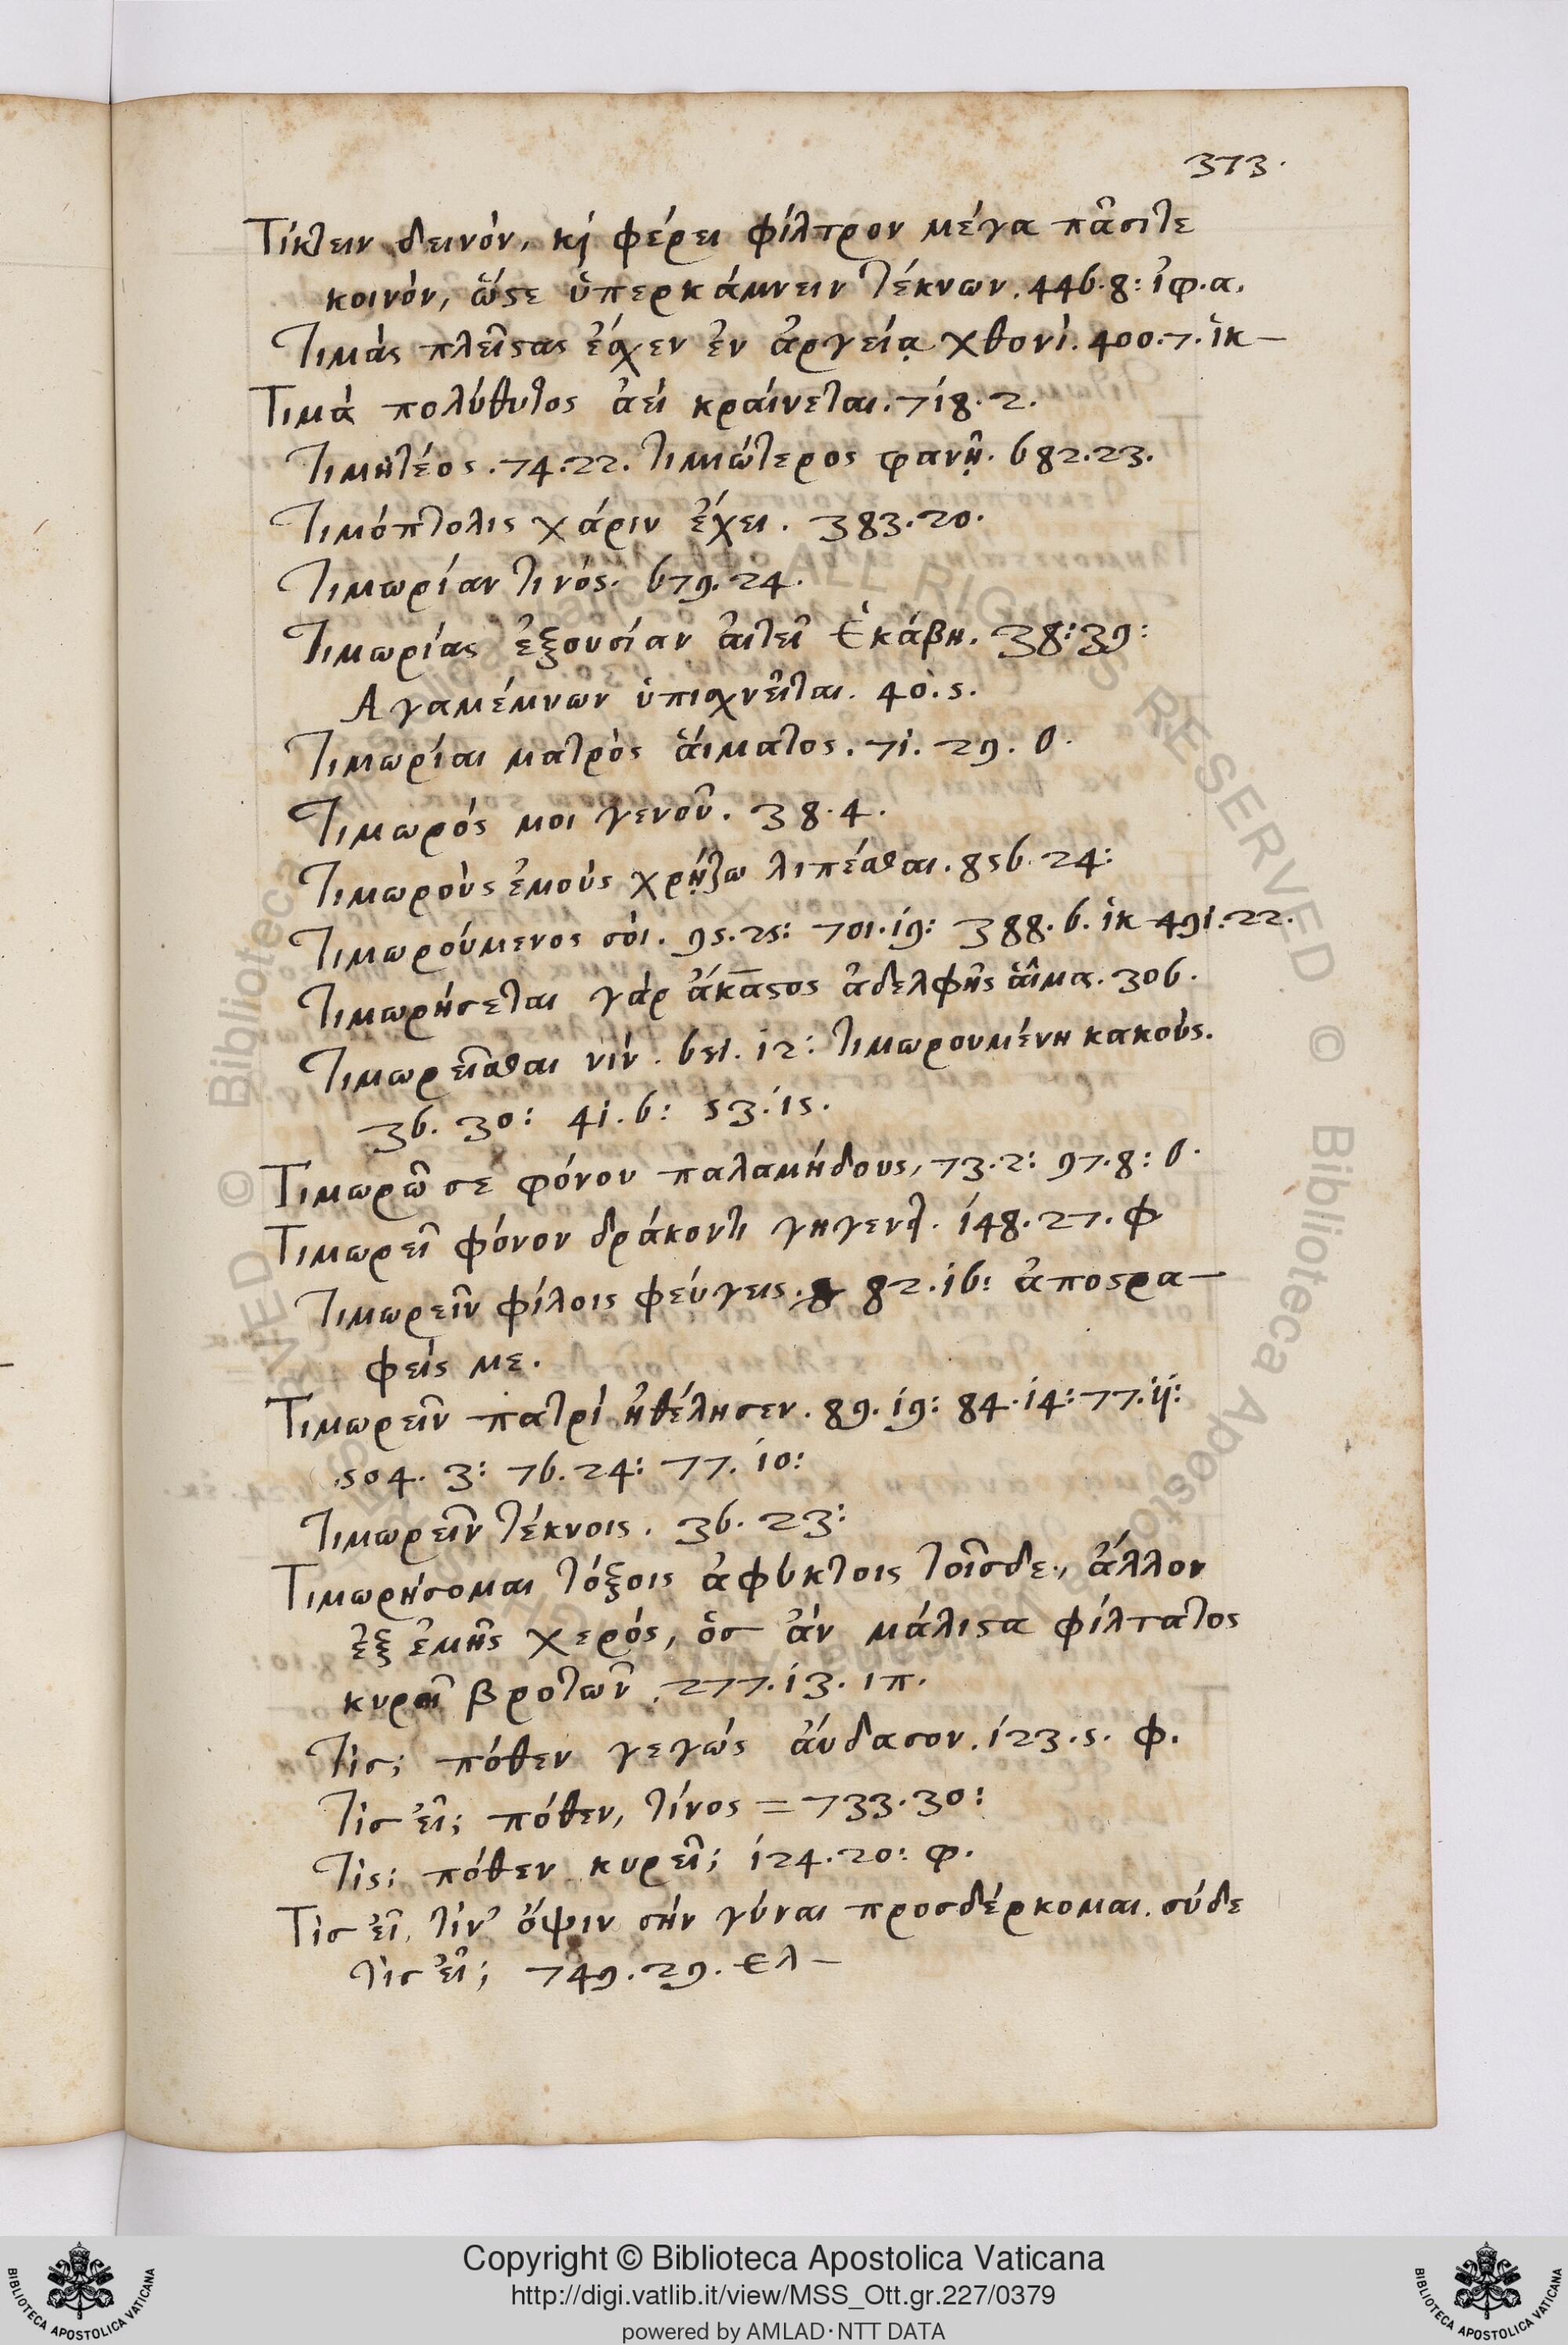 373.
Τίκτειν δεινόν, κὶ φέρει φίλτρον μέγα πᾶσίτε
κοινὸν, ὥστε ὑπερκάμνειν τέκνων. 446.8: ἰφ.α.
Τιμὰς πλεῖστας ἔσχεν ἐν ἀργείᾳ χθονί. 400.7. ἱκ–
Τιμὰ πολύθυτος ἀεὶ κράινεται. 718.2.
Τιμητέος. 74.22. τιμιώτερος φανῇ. 682.23.
Τιμόπτολις χάριν ἔχει. 383.20.
Τιμωρίαν τινός. 679.24.
Τιμωρίας ἐξουσίαν ἀιτεῖ Ἑκάβη. 38:39:
Αγαμέμνων ὑπισχνεῖται. 40.5.
Τιμωρίαι ματρὸς ἅιματος. 71. 29. ο.
Τιμωρός μοι γενοῦ. 38.4.
Τιμωροὺς ἐμοὺς χρῄζω λιπέσθαι. 856.24:
Τιμωρούμενος σόι. 95.25: 701.19: 388.6. ἱκ 491.22.
Τιμωρήσεται γὰρ ἄκαστος ἀδελφῆς ἅιμα. 306.
Τιμωρεῖσθαι νίν. 651. 12: τιμωρουμένη κακούς.
36. 30: 41.6: 53.15.
Τιμωρῶ σε φόνου παλαμήδους, 73.2: 97.8: ο.
Τιμωρεῖ φόνον δράκοντι γηγενεῖ. 148.27. φ
Τιμωρεῖν φίλοις φεύγεις. 82.16: ἀποστρα–
φείς με.
Τιμωρεῖν πατρὶ ἠθέλησεν. 89.19: 84.14: 77.11:
504. 3: 76.24: 77. 10:
Τιμωρεῖν τέκνοις. 36. 23:
Τιμωρήσομαι τόξοις ἀφύκτοις τοῖσδε, ἄλλον
ἐξ ἐμῆς χερός, ὃσ ἂν μάλιστα φίλτατος
κυρεῖ βροτῶν. 277.13. ιπ.
Τίσ; πόθεν γεγώς ἄυδασον. 123.5. φ.
Τίσ εἶ; πόθεν, τίνος = 733.30:
Τίς; πόθεν κυρεῖ; 124.20: φ.
Τίσ εἶ, τίν' ὄψιν σὴν γύναι προσδέρκομαι. σύδε
τίσ εἶ; 749.29. Ελ–
Copyright © Biblioteca Apostolica Vaticana
http://digi.vatlib.it/view/MSS_Ott.gr.227/0379
powered by AMLAD·NTT DATA